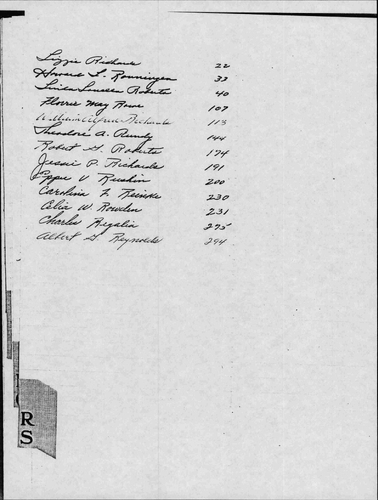 Lizzie Richard 22
Howard L. Ronningen 33
Louisa Roberts 40
Florrie May Rowe 107
Richards 113
Theodore A. Rundy 144
Robert G. Roberts 174
Jessie P. Richards 191
Eppie V. Rushin 200
Carolina F. Reinke 230
Celia W. Rowden 231
Charles Regalia 275
Albert G. Reynolds 294
R
S